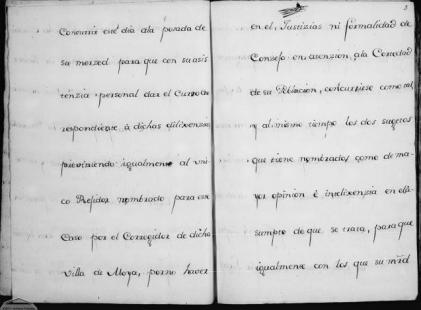 Concurrir este dia ala posada de
su merzed para que con su asis
tenzia personal dar el Curso co
rrespondiente à dichas dilixenzias
previniendo igualmente al uni
co Rexidor nombrado para este
Caso por el Corregidor de dicha
Villa de Moya, por no haver
5
en el, Justizias ni formalidad de
Consejo en atenzion, à la Cortedad
de su Poblacion, concurriese como tal,
y al mismo tiempo los dos sugetos
que tiene nombrados como de ma-
yor opinion è intelixenzia en el a-
sumpto de que se trata, para que
igualmente con los que su mrd